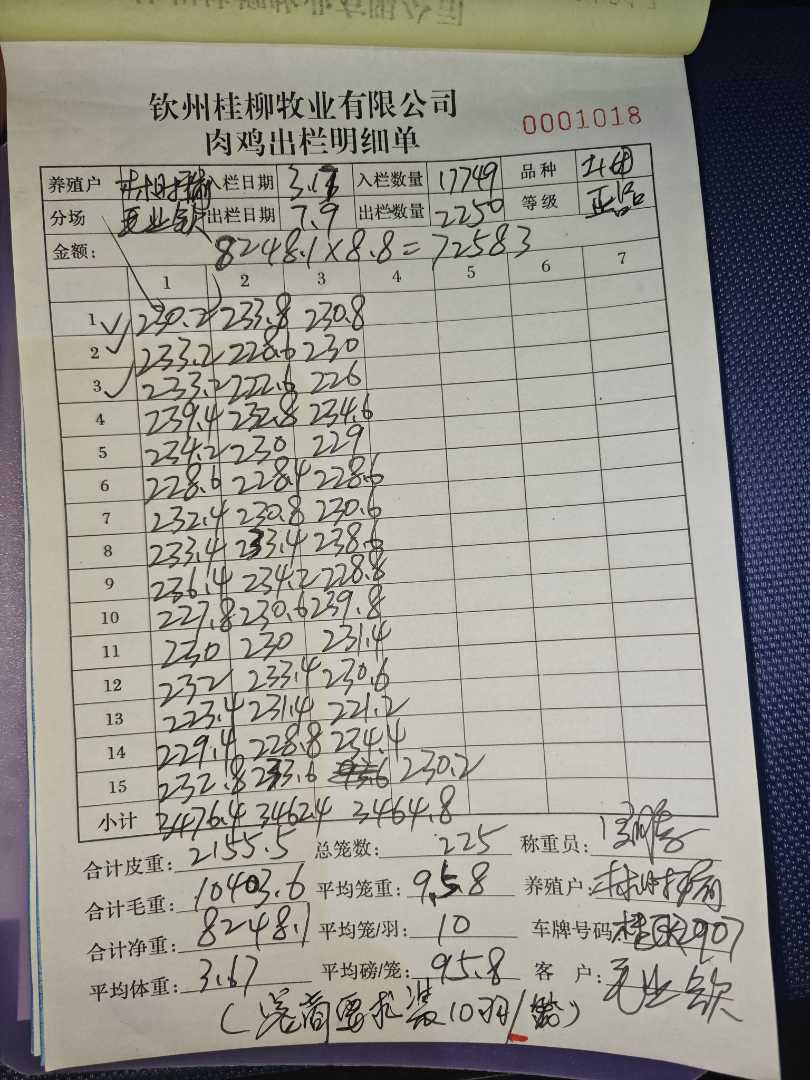 钦州桂柳牧业有限公司
肉鸡出栏明细单 0001018
养殖户 入栏日期 入栏数量 17749 品种 土2
分场 出栏日期 7.9 出栏数量 2250 等级 正品
金额: 8248.1×8.8=72583
1 2 3 4 5 6 7
1 ✓ 230.2 233.8 230.8
2 ✓ 233.2 228.6 230
3 ✓ 233.2 222.6 226
4 239.4 232.8 234.6
5 234.2 230 229
6 228.6 228.4 228.6
7 232.4 230.8 230.6
8 233.4 233.4 238.6
9 236.4 234.2 228.8
10 227.8 230.6 239.8
11 230 230 231.4
12 232 233.4 230.6
13 223.4 231.4 221.2
14 229.4 228.8 234.4
15 232.8 233.6 230.2
小计 3476.4 3462.4 3464.8
合计皮重: 2155.5 总笼数: 225 称重员:
合计毛重: 10403.6 平均笼重: 9.58 养殖户:
合计净重: 8248.1 平均笼/羽: 10 车牌号码: 2907
平均体重: 3.67 平均磅/笼: 95.8 客 户:
(客商要求装10羽/笼)